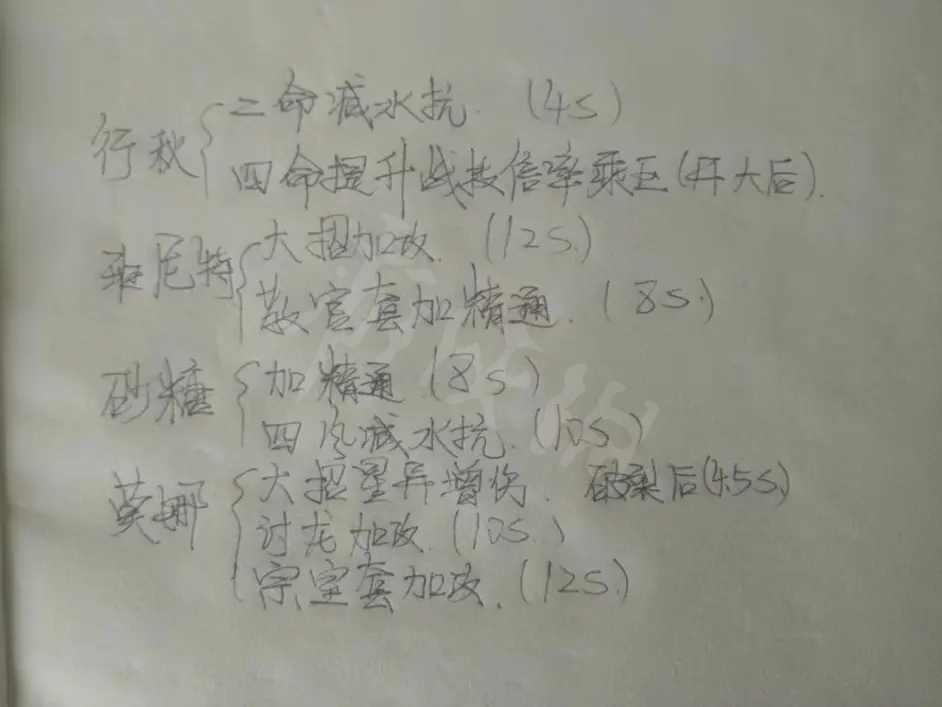 行秋
二命减水抗.(4s)
四命提升战技倍率乘区(开大后).
班尼特
大招加攻.(12s.)
教官套加精通.(8s.)
砂糖
加精通(8s)
四风减水抗.(10s)
莫娜
大招星异增伤.破裂后(4.5s.)
讨龙加攻.(10s.)
宗室套加攻.(12s.)